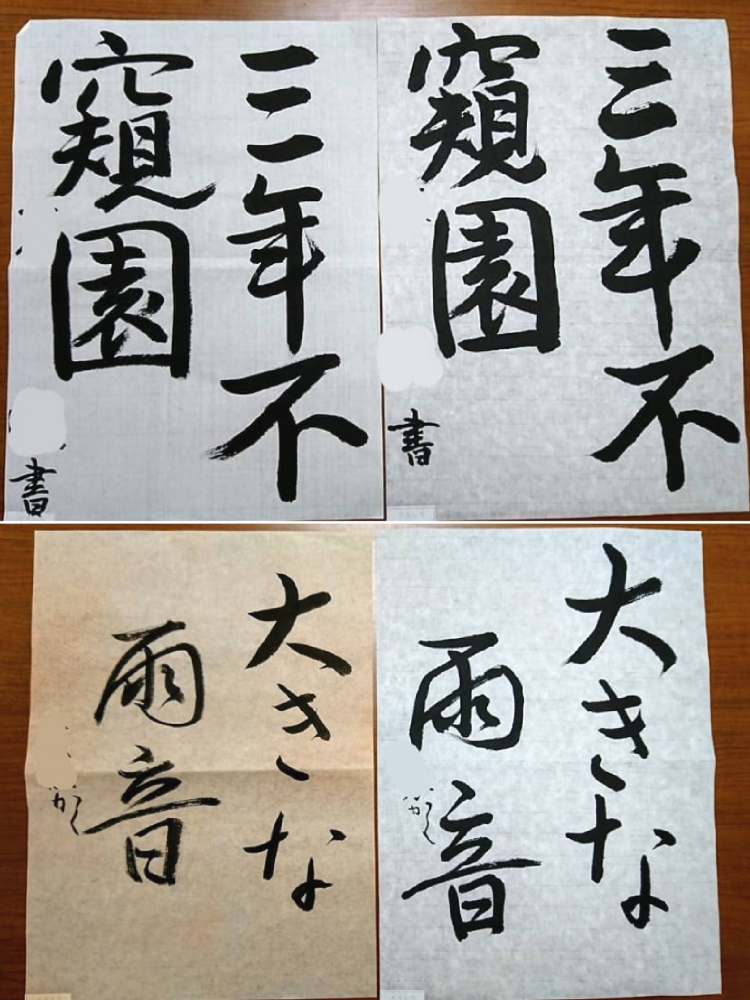 三年不
窺園
書
三年不
窺園
書
大きな
雨音
かく
大きな
雨音
かく